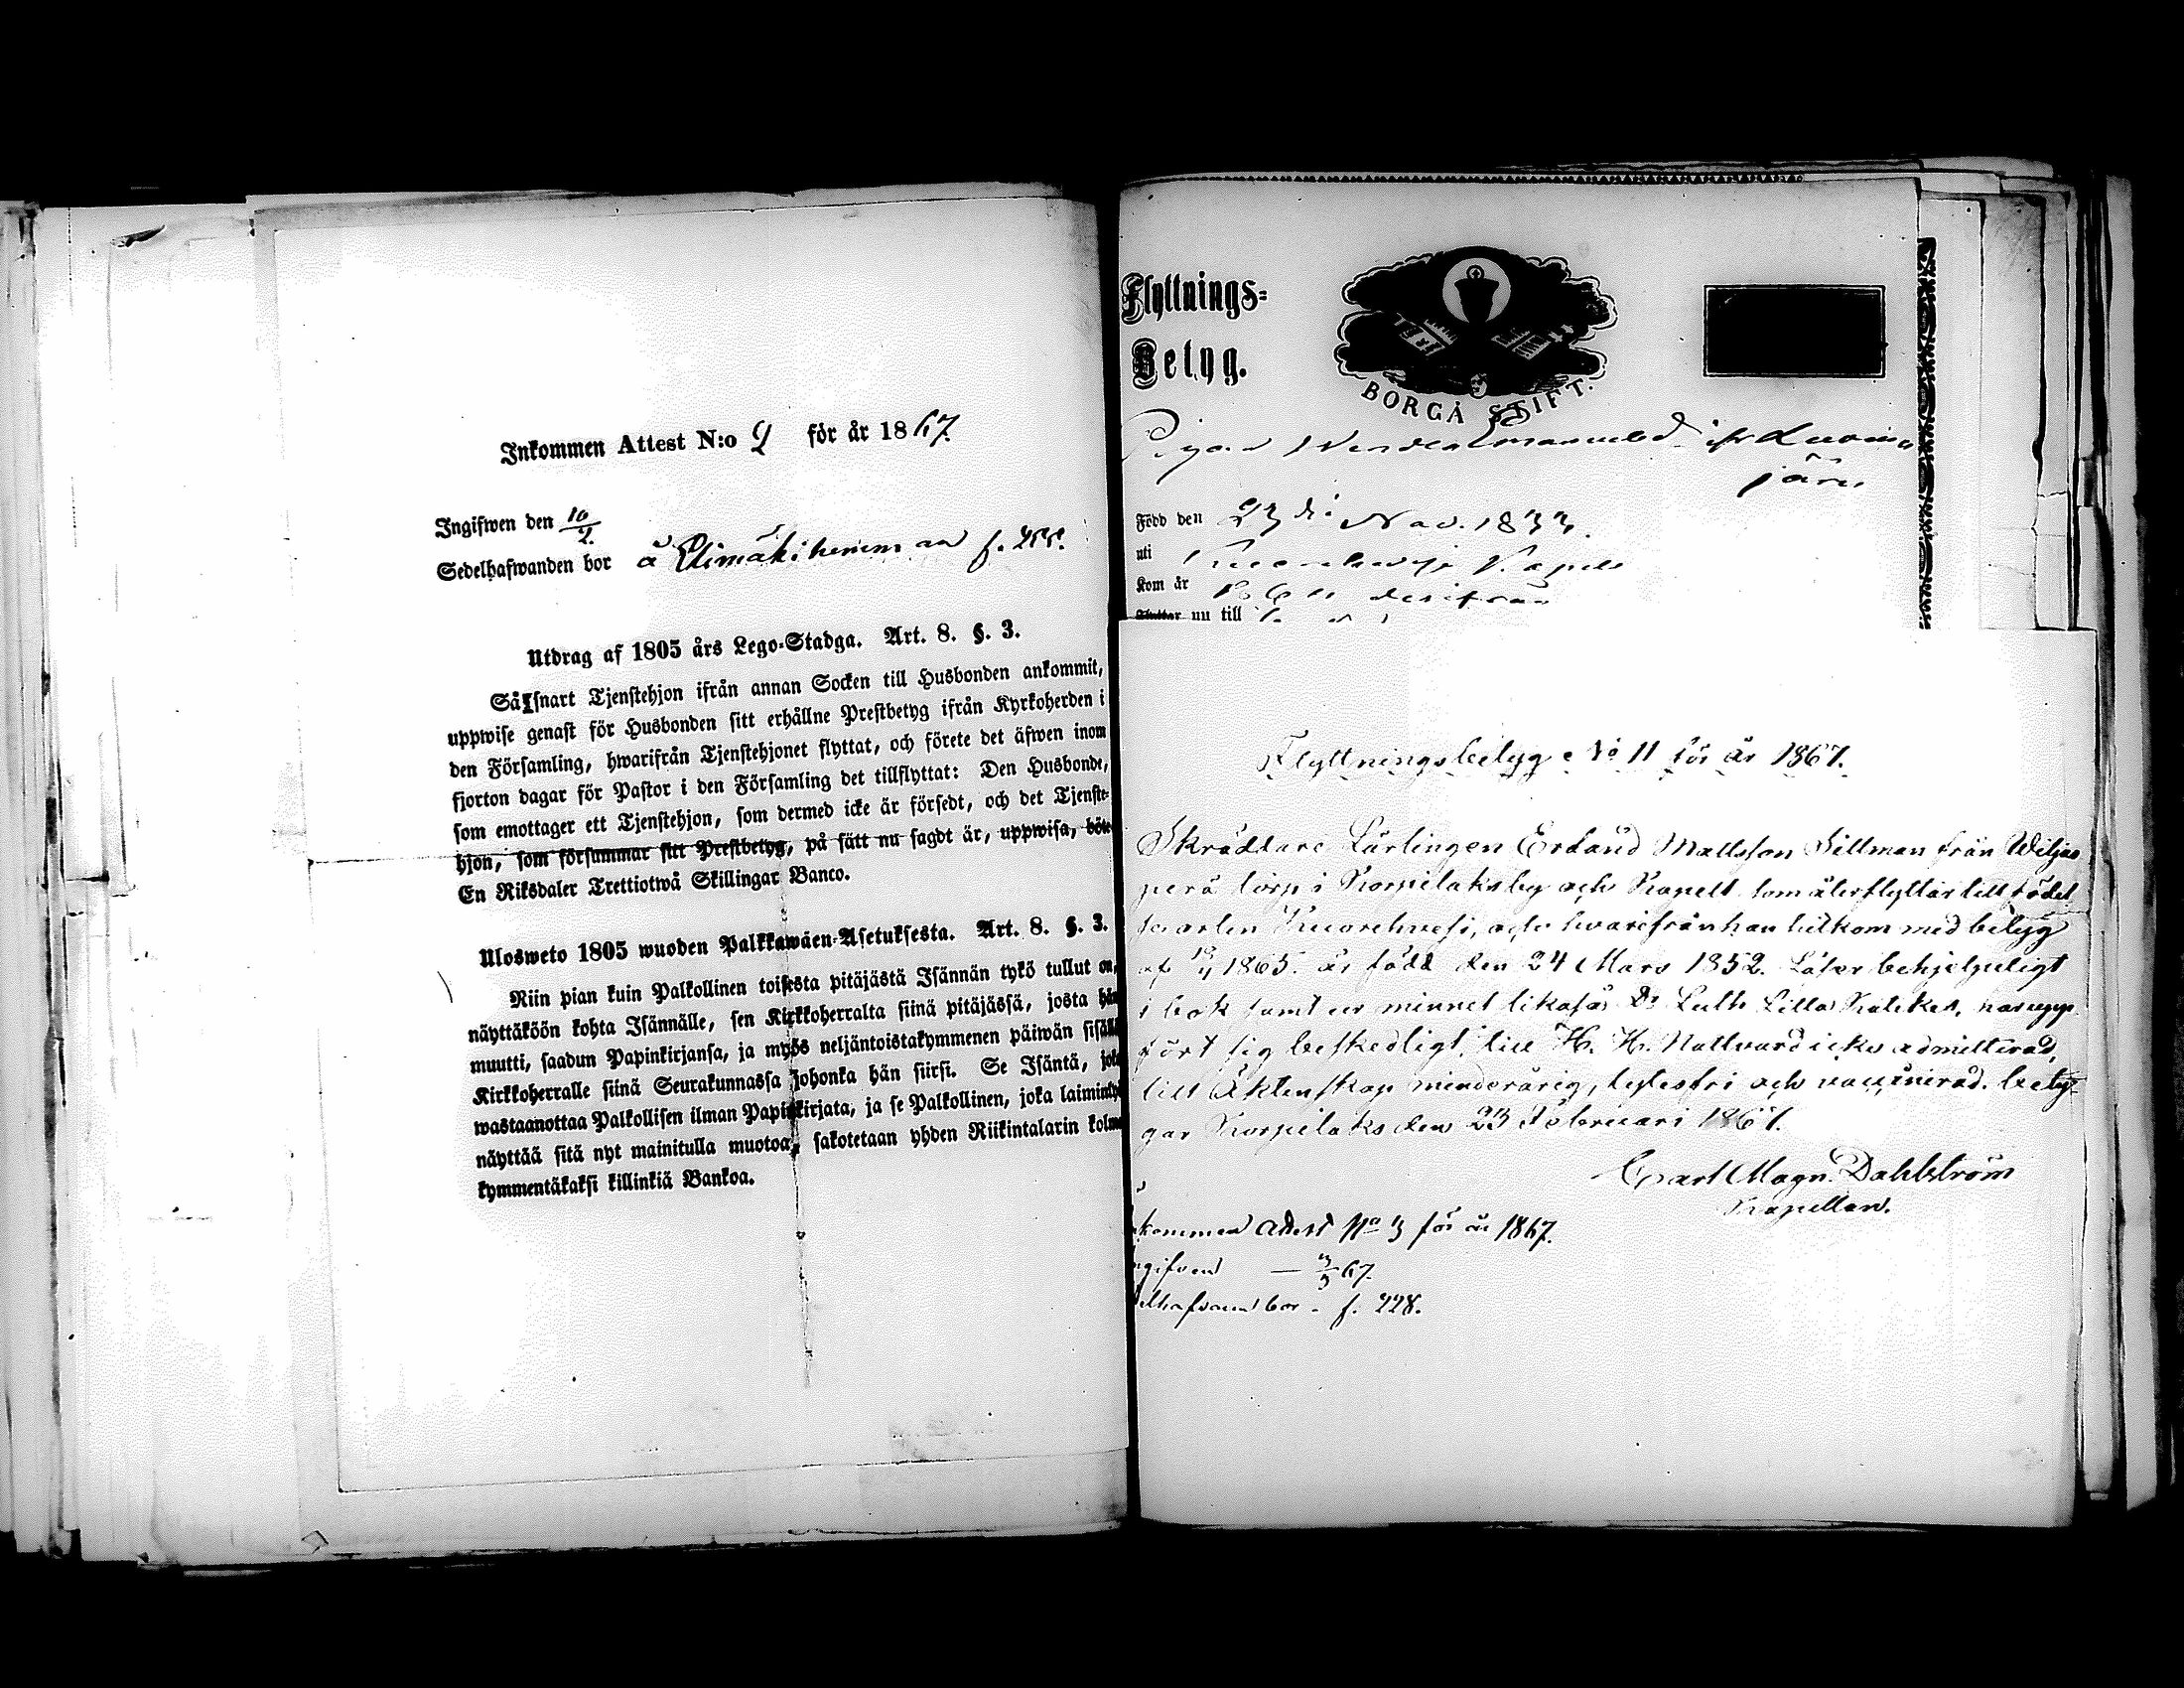 Inkommen Attest N:o 2 för år 1867.
Ingifwen den 10/2.
Sedelhafwanden bor å Elimäki hemman f. 255.
Utdrag af 1805 års Lego-Stadga. Art. 8. §. 3.
Så snart Tjenstehjon ifrån annan Socken till Husbonden ankommit,
uppwise genast för Husbonden sitt erhållne Prestbetyg ifrån Kyrkoherden i
den Församling, hwarifrån Tjenstehjonet flyttat, och förete det äfwen inom
fjorton dagar för Pastor i den Församling det tillflyttat: Den Husbonde,
som emottager ett Tjenstehjon, som dermed icke är försedt, och det Tjenste-
hjon, som försummar sitt Prestbetyg, på sätt nu sagdt är, uppwisa, böte
En Riksdaler Trettiotwå Skillingar Banco.
Ulosweto 1805 wuoden Palkkawäen-Asetuksesta. Art. 8. §. 3.
Niin pian kuin Palkollinen toisesta pitäjästä Isännän tykö tullut on,
näyttäköön kohta Isännälle, sen Kirkkoherralta siinä pitäjässä, josta hän
muutti, saadun Papinkirjansa, ja myös neljäntoistakymmenen päiwän sisällä
Kirkkoherralle siinä Seurakunnassa johonka hän siirsi. Se Isäntä, joka
wastaanottaa Palkollisen ilman Papinkirjata, ja se Palkollinen, joka laiminlyö
näyttää sitä nyt mainitulla muotoa, sakotetaan yhden Riikintalarin kolme
kymmentäkaksi killinkiä Bankoa.
Flyttnings-
Betyg.
BORGÅ STIFT.
Pigan Emanuelsd. ifr Kuoma
järvi
Född den 23 di Nov. 1833.
uti Kapell
Kom år derifrån
Flyttar nu till
Flyttningsbetyg No 11 för år 1867.
Skräddare Lärlingen Erland Mattsson Sillman från Wiljas
perä torp i Korpilaks by och Kapell som återflyttar till födel
se orten Kuorehvesi, och hvarifrån han hitkom med betyg
af 1865. är född den 24 Mars 1852. Läser behjelpeligt
i bok samt ur minnet likaså Dr Luth Lilla Katekes, har upp
fört sig beskedligt, till H. H. Nattvard icke admitterad,
till Äktenskap minderårig, lytesfri och vaccinerad. bety-
gar Korpilaks den 23 Februari 1867.
Carl Magn. Dahlström
Kapellan.
kommen Attest No 3 för år 1867.
ngifven — 3/3 67.
elhafvand bor - f. 228.